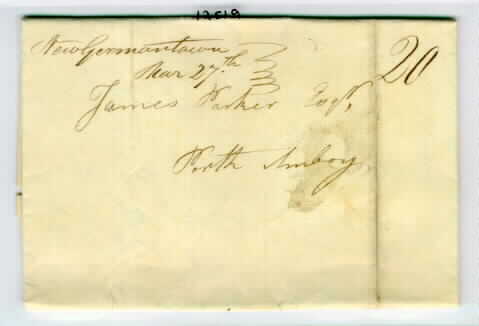 New Germantown
Mar 27th
20
James Parker Esqr,
Perth Amboy